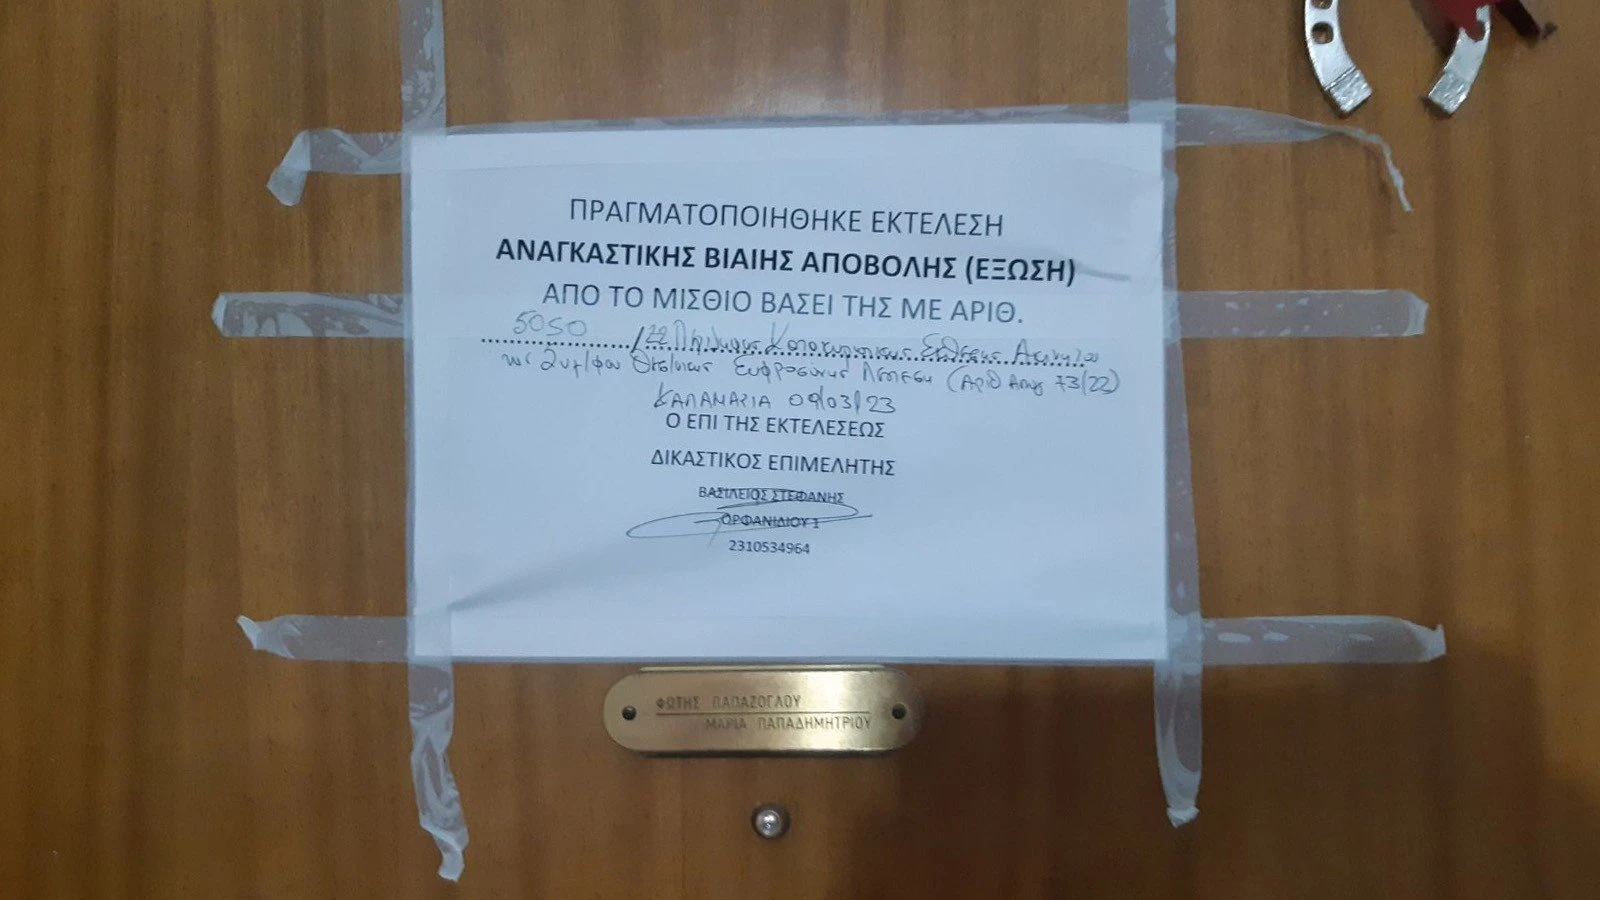 ΠΡΑΓΜΑΤΟΠΟΙΗΘΗΚΕ ΕΚΤΕΛΕΣΗ
ΑΝΑΓΚΑΣΤΙΚΗΣ ΒΙΑΙΗΣ ΑΠΟΒΟΛΗΣ (ΕΞΩΣΗ)
ΑΠΟ ΤΟ ΜΙΣΘΙΟ ΒΑΣΕΙ ΤΗΣ ΜΕ ΑΡΙΘ.
5050 /22 Περίληψης Κατακυρωτικής Εκθέσεως Ακινήτου
της Συμ/φου Θεσ/νίκης Ευφροσύνης (Αριθ 73/22)
ΚΑΛΑΜΑΡΙΑ 09/03/23
Ο ΕΠΙ ΤΗΣ ΕΚΤΕΛΕΣΕΩΣ
ΔΙΚΑΣΤΙΚΟΣ ΕΠΙΜΕΛΗΤΗΣ
ΒΑΣΙΛΕΙΟΣ ΣΤΕΦΑΝΗΣ
ΟΡΦΑΝΙΔΙΟΥ 1
2310534964
ΦΩΤΗΣ ΠΑΠΑΖΟΓΛΟΥ
ΜΑΡΙΑ ΠΑΠΑΔΗΜΗΤΡΙΟΥ